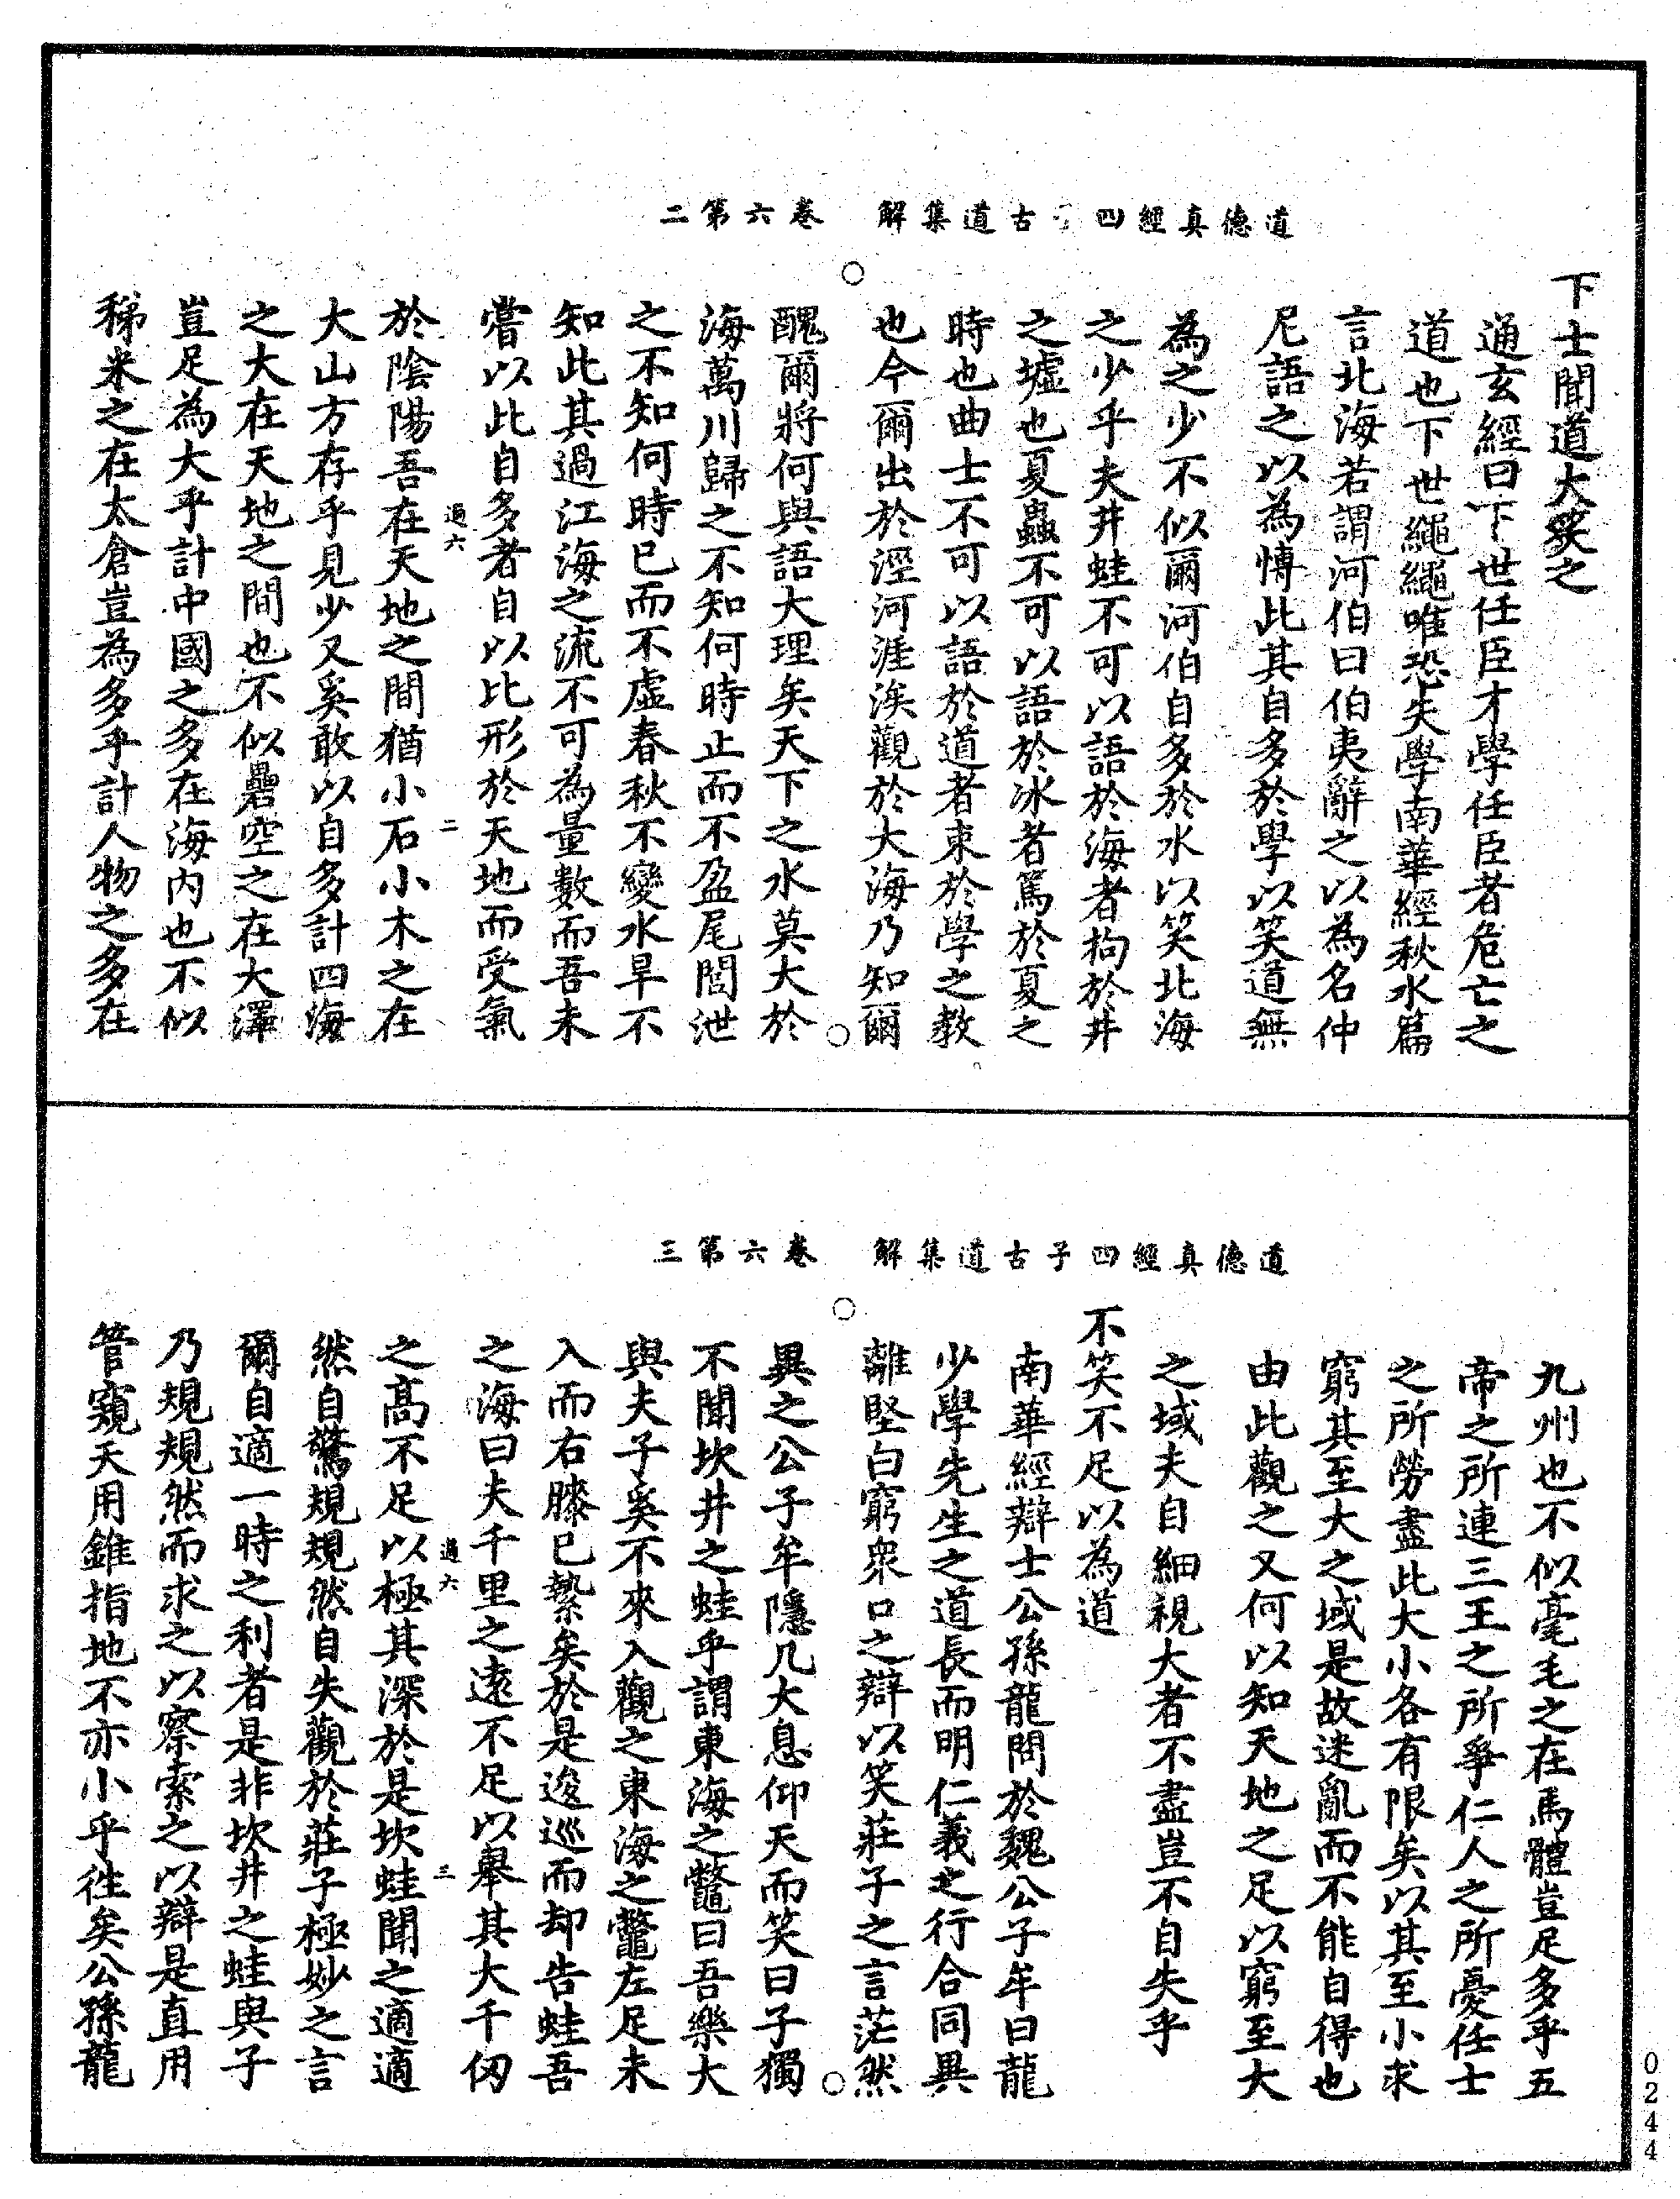 道德真經四子古道集解　卷六第二
下士聞道大笑之
通玄經曰下世任臣才學任臣者危亡之
道也下世繩繩唯恐失學南華經秋水篇
言北海若謂河伯曰伯夷辭之以為名仲
尼語之以為博此其自多於學以笑道無
為之少少不似爾河伯自多於水以笑北海
之少乎夫井蛙不可以語於海者拘於井
之墟也夏蟲不可以語於冰者篤於夏之
時也曲士不可以語於道者束於學之教
也今爾出於涇河涯涘觀於大海乃知爾
醜爾將何與語大理矣天下之水莫大於
海萬川歸之不知何時止而不盈尾閭泄
之不知何時已而不虛春秋不變水旱不
知此其過江海之流不可為量數而吾未
嘗以此自多者自以比形於天地而受氣
過六　二
於陰陽吾在天地之間猶小石小木之在
大山方存乎見少又奚敢以自多計四海
之大在天地之間也不似礨空之在大澤
豈足為大乎計中國之多在海內也不似
稊米之在太倉豈為多乎計人物之多在
道德真經四子古道集解　卷六第三
九州也不似毫毛之在馬體豈足多乎五
帝之所連三王之所爭仁人之所憂任士
之所勞盡此大小各有限矣以其至小求
窮其至大之域是故迷亂而不能自得也
由此觀之又何以知天地之足以窮至大
之域夫自細視大者不盡豈不自失乎
不笑不足以為道
南華經辯士公孫龍問於魏公子牟曰龍
少學先生之道長而明仁義之行合同異
離堅白窮眾口之辯以笑莊子之言茫然
異之公子牟隱几大息仰天而笑曰子獨
不聞坎井之蛙乎謂東海之鼈曰吾樂大
與夫子奚不來入觀之東海之鼈左足未
入而右膝已縶矣於是逡巡而却告蛙吾
之海曰夫千里之遠不足以舉其大千仞
過六　三
之高不足以極其深於是坎蛙聞之適適
然自驚規規然自失觀於莊子極妙之言
爾自適一時之利者是非坎井之蛙與子
乃規規然而求之以察索之以辯是直用
管窺天用錐指地不亦小乎往矣公孫龍
0244